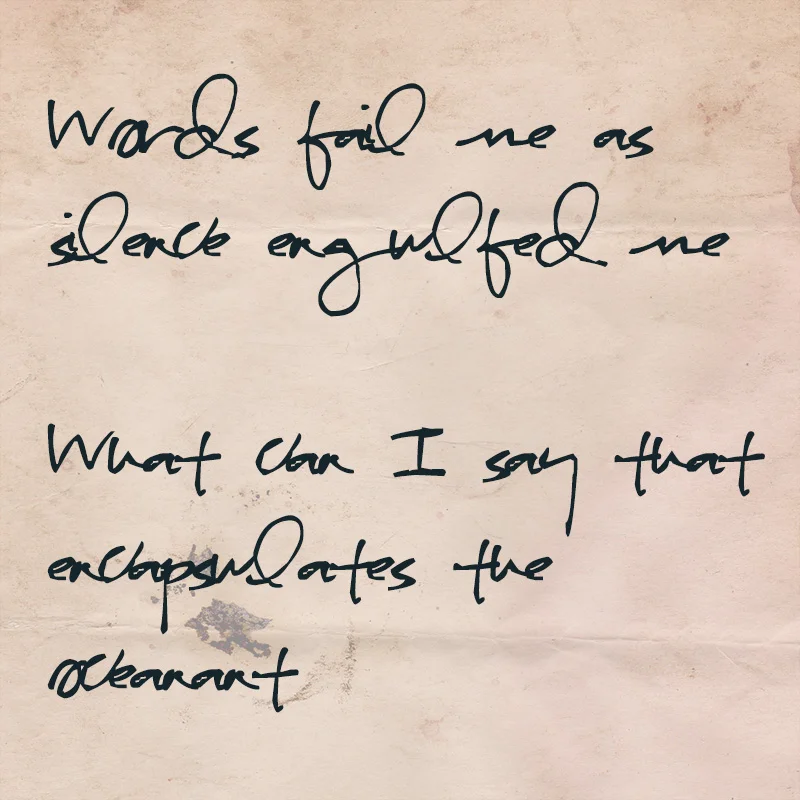 Words fail me as
silence engulfed me
What can I say that
encapsulates the
oceanant